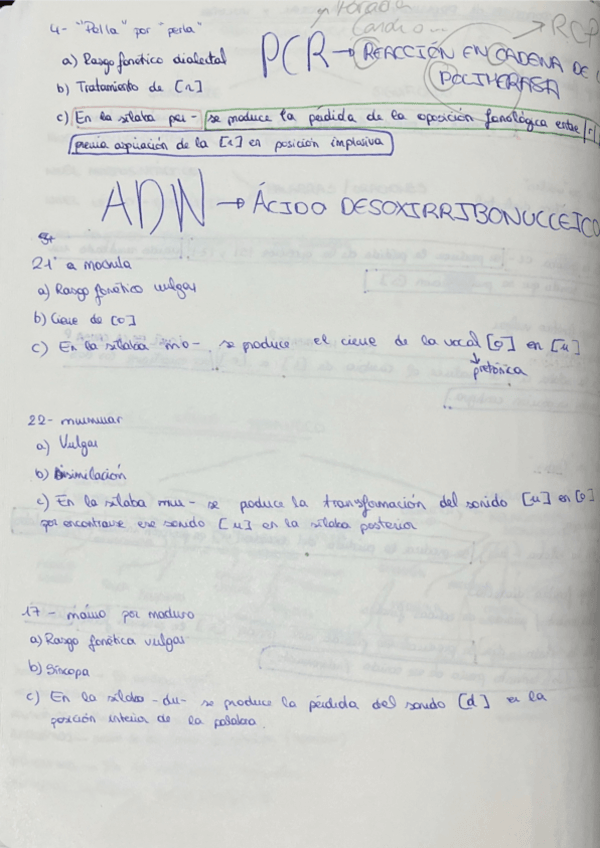 4- "Polla" por "perla"
RCP
a) Rasgo fonético dialectal
PCR → REACCIÓN EN CADENA DE
POLIMERASA
b) Tratamiento de [r]
c) En la sílaba per- se produce la pérdida de la oposición fonológica entre
previa aspiración de la [r] en posición implosiva
ADN → ÁCIDO DESOXIRRIBONUCLEICO
21 a mochila
a) Rasgo fonético vulgar
b) Cierre de [o]
c) En la sílaba mo- se produce el cierre de la vocal [o] en [u]
pretónica
22- murmurar
a) Vulgar
b) Disimilación
c) En la sílaba mu- se poduce la transformación del sonido [u] en [o]
por encontrarse ese sonido [u] en la sílaba posterior
17- maúro por maduro
a) Rasgo fonética vulgar
b) Síncopa
c) En la sílaba -du- se produce la pérdida del sonido [d] en la
posición interior de la palabra.